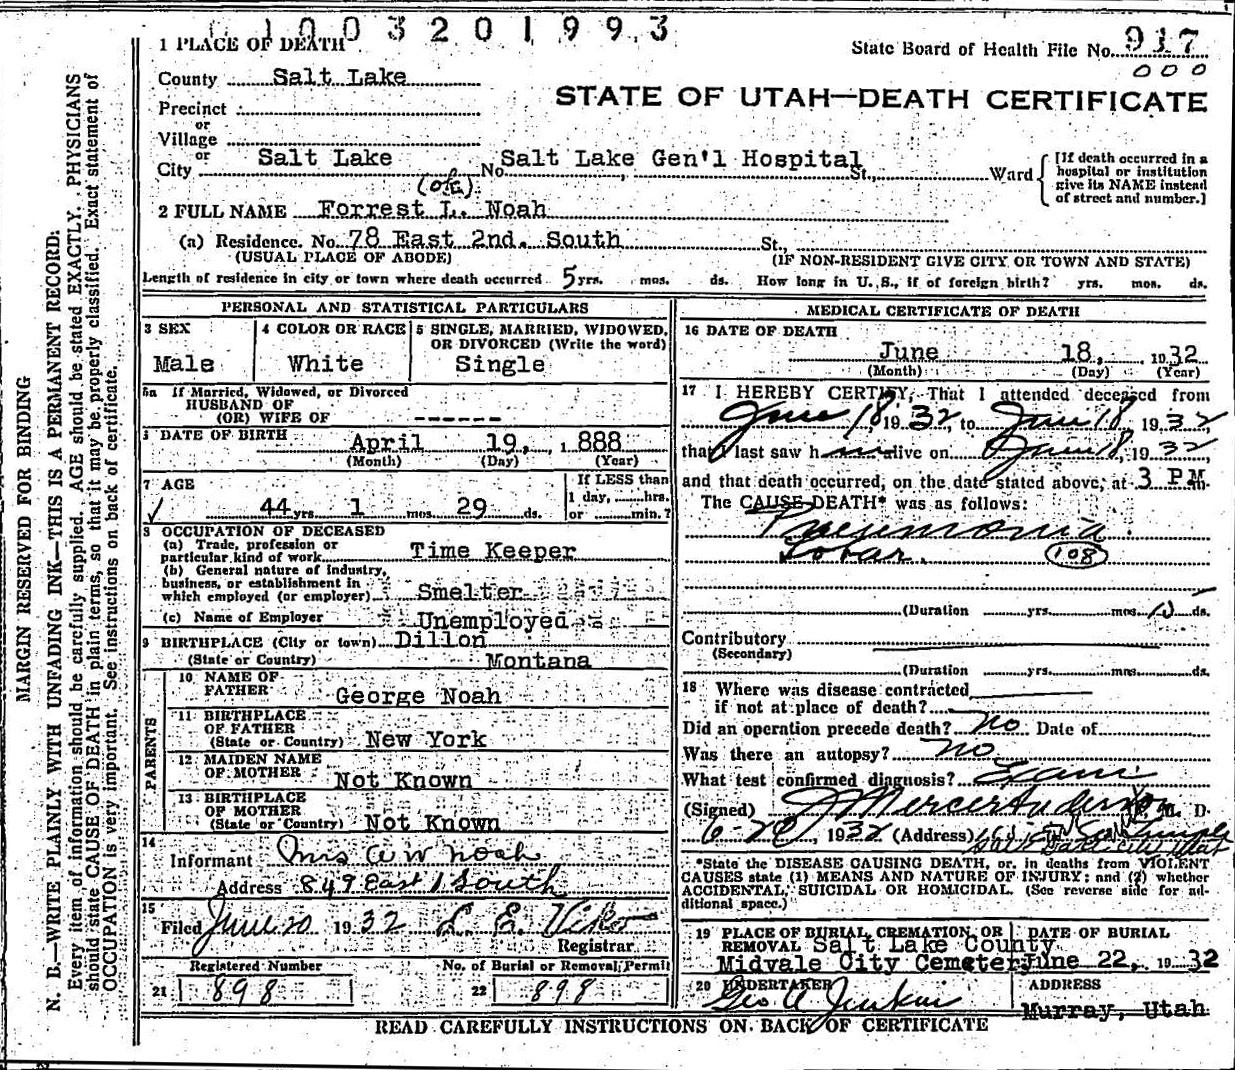 1003201993
1 PLACE OF DEATH
State Board of Health File No. 917
000
County Salt Lake
STATE OF UTAH—DEATH CERTIFICATE
Precinct
or
Village
or
City Salt Lake No. Salt Lake Gen'l Hospital St., Ward
[If death occurred in a hospital or institution give its NAME instead of street and number.]
(ok)
2 FULL NAME Forrest L. Noah
(a) Residence. No. 78 East 2nd. South St.,
(USUAL PLACE OF ABODE) (IF NON-RESIDENT GIVE CITY OR TOWN AND STATE)
Length of residence in city or town where death occurred 5 yrs. mos. ds. How long in U. S., if of foreign birth? yrs. mos. ds.
PERSONAL AND STATISTICAL PARTICULARS
3 SEX
Male
4 COLOR OR RACE
White
5 SINGLE, MARRIED, WIDOWED,
OR DIVORCED (Write the word)
Single
5a If Married, Widowed, or Divorced
HUSBAND OF
(OR) WIFE OF ------
DATE OF BIRTH April 19, 1888
(Month) (Day) (Year)
7 AGE
44 yrs. 1 mos. 29 ds.
If LESS than
1 day, hrs.
or min.?
8 OCCUPATION OF DECEASED
(a) Trade, profession or
particular kind of work Time Keeper
(b) General nature of industry,
business, or establishment in
which employed (or employer) Smelter
(c) Name of Employer Unemployed
9 BIRTHPLACE (City or town) Dillon
(State or Country) Montana
PARENTS
10 NAME OF
FATHER George Noah
11 BIRTHPLACE
OF FATHER
(State or Country) New York
12 MAIDEN NAME
OF MOTHER Not Known
13 BIRTHPLACE
OF MOTHER
(State or Country) Not Known
14
Informant Mrs A W Noah
Address 849 East 1 South
15
Filed June 20 1932 L. E. Viko
Registrar
Registered Number
21 898
No. of Burial or Removal Permit
22 898
MEDICAL CERTIFICATE OF DEATH
16 DATE OF DEATH
June 18, 1932
(Month) (Day) (Year)
17 I HEREBY CERTIFY, That I attended deceased from
June 18 1932, to June 18, 1932
that I last saw him alive on June 18, 1932
and that death occurred, on the date stated above, at 3 P.M.
The CAUSE DEATH* was as follows:
Pneumonia
Lobar 108
(Duration yrs. mos. 10 ds.
Contributory
(Secondary)
(Duration yrs. mos. ds.
18 Where was disease contracted
if not at place of death?
Did an operation precede death? No Date of
Was there an autopsy? No
What test confirmed diagnosis? Exam
(Signed) J Mercer Anderson M. D
6-20, 1932 (Address)
Salt Lake City Utah
*State the DISEASE CAUSING DEATH, or, in deaths from VIOLENT
CAUSES state (1) MEANS AND NATURE OF INJURY; and (2) whether
ACCIDENTAL, SUICIDAL OR HOMICIDAL. (See reverse side for ad-
ditional space.)
19 PLACE OF BURIAL, CREMATION, OR
REMOVAL Salt Lake County
Midvale City Cemetery
DATE OF BURIAL
June 22, 1932
20 UNDERTAKER
Geo A Jenkins
ADDRESS
Murray, Utah
READ CAREFULLY INSTRUCTIONS ON BACK OF CERTIFICATE
MARGIN RESERVED FOR BINDING
N. B.—WRITE PLAINLY WITH UNFADING INK—THIS IS A PERMANENT RECORD:
Every item of information should be carefully supplied. AGE should be stated EXACTLY. PHYSICIANS
should state CAUSE OF DEATH in plain terms, so that it may be properly classified. Exact statement of
OCCUPATION is very important. See instructions on back of certificate.